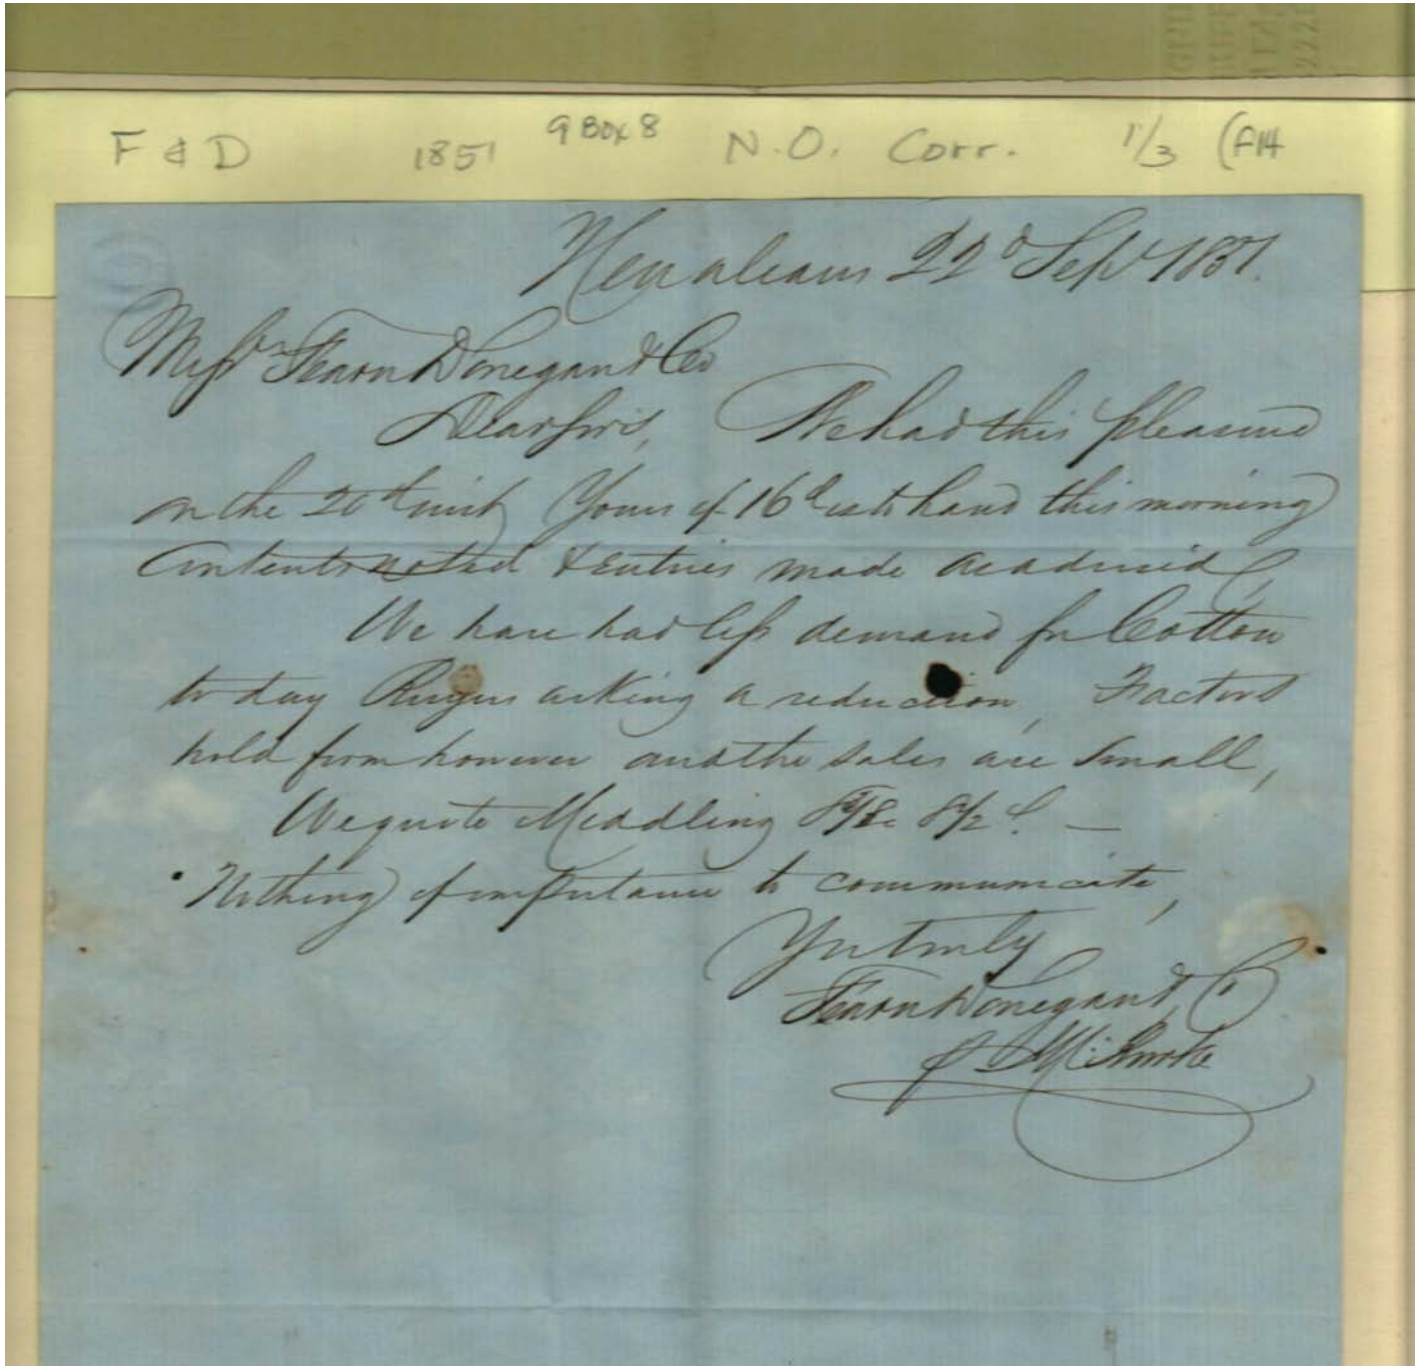 F & D 1851 9 Box 8 N.O. Corr. 1/3 (F14
New Orleans 22d Sept 1851.
Messrs Fearn Donegan & Co
Dear Sirs, We had this pleasure
on the 20th inst Yours of 16th is to hand this morning
Contents noted & entries made
We have had less demand for Cotton
to day Buyers asking a reduction, Factors
hold firm however and the sales are small,
We quote Middling 8 1/2 c. —
Nothing of importance to communicate,
Yrs truly
Fearn Donegan & Co